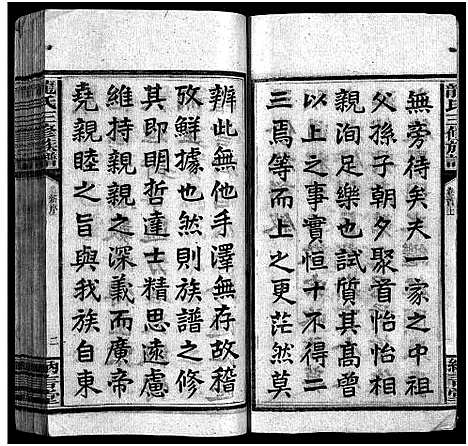 龍氏三修族譜
無旁待矣夫一家之中祖
父孫子朝夕聚首怡怡相
親洵足樂也試質其高曾
以上之事實恒十不得二
三焉等而上之更茫然莫
辦此無他手澤無存故稽
攷鮮據也然則族譜之修
其即明哲達士精思遠慮
維持親親之深義而廣帝
堯親睦之旨與我族自東
龍氏三修族譜
二